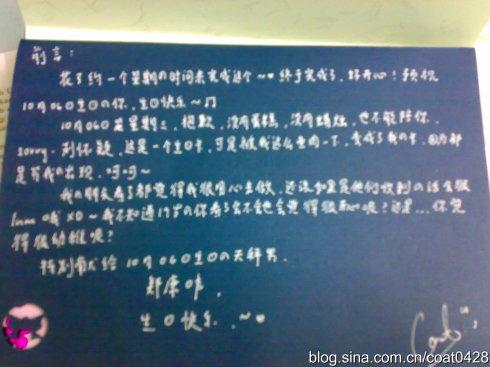 前言：
花了约一个星期的时间来完成这个~终于完成了，好开心！预祝
10月06日生日の你，生日快乐~♫
10月06日是星期三，抱歉，没有蛋糕，没有蜡烛，也不能陪你．
sorry．别怀疑，这是一个生日卡，可是被我这么
是有我の出现．呵呵~
我の朋友看了都觉得我很有心去做，还说如果是他们收到の话会很
哦 XD~我不知道17岁の你看了会不会也会觉得很开心呢？还是…你觉
得很幼稚呢？
特别献给10月06日生日の天秤男．
郑康
生日快乐．~
blog.sina.com.cn/coat0428